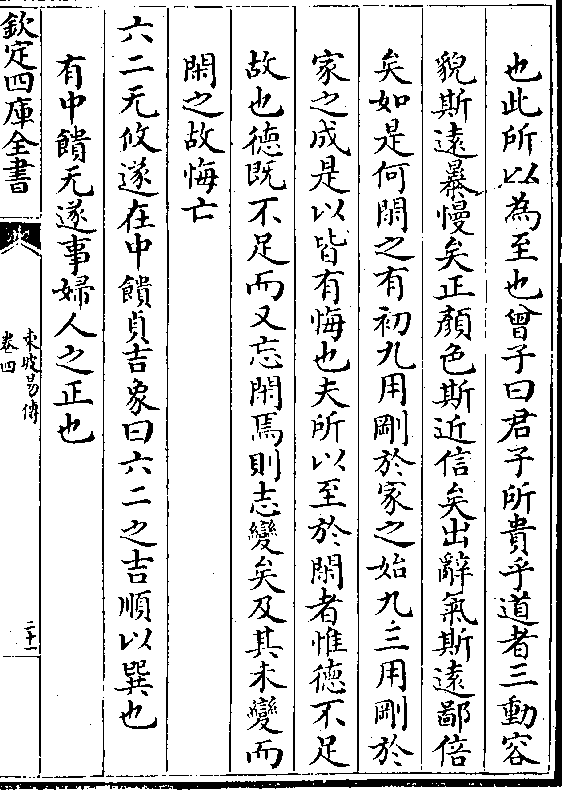 也此所以為至也曾子曰君子所貴乎道者三動容
貌斯遠暴慢矣正顏色斯近信矣出辭氣斯遠鄙倍
矣如是何閑之有初九用剛於家之始九三用剛於
家之成是以皆有悔也夫所以至於閑者惟德不足
故也德既不足而又忘閑焉則志變矣及其未變而
閑之故悔亡
六二无攸遂在中饋貞吉象曰六二之吉順以巽也
有中饋无遂事婦人之正也
欽定四庫全書
東坡易傳
卷四
二十一